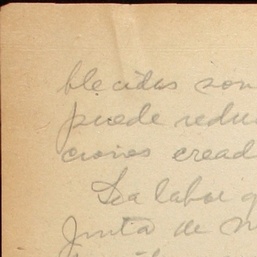 blecidas son
puede redu
ciones cread
La labor q
Junta de